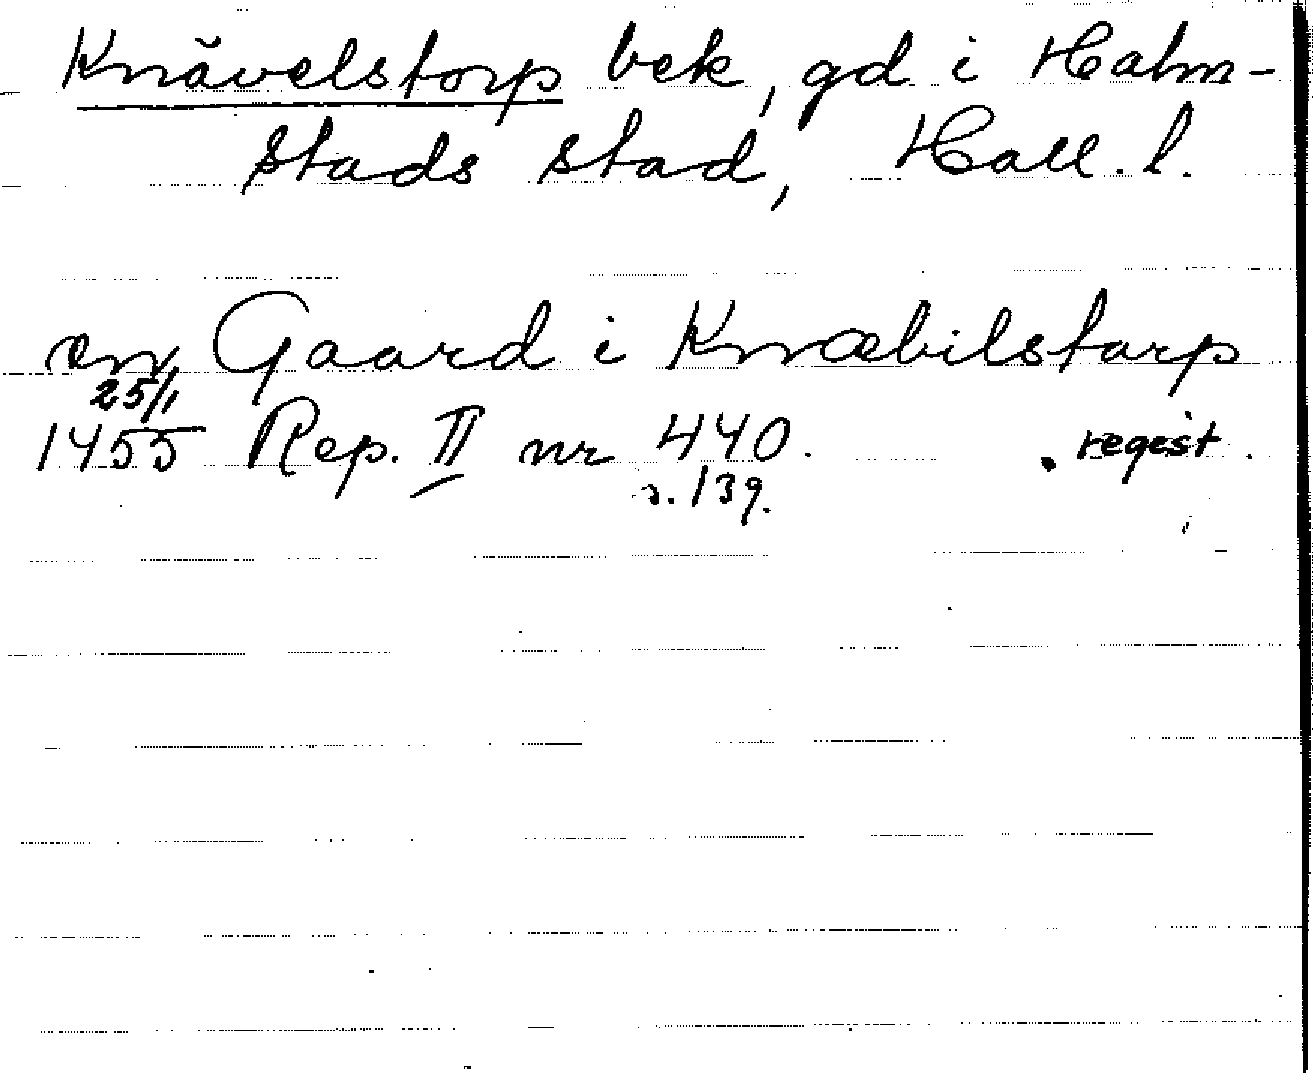 Knävelstorp bek, gd i Halm-
stads stad, Hall. l.
en Gaard i Knæbilstorp
25/1
1455 Rep. II nr 440. regist.
s. 139.